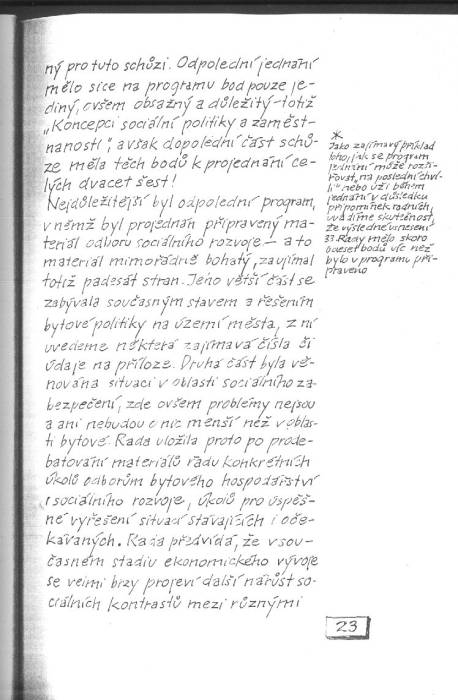 ný pro tuto schůzi. Odpolední jednání
mělo sice na programu bod pouze je-
diný, ovšem obsažný a důležitý - totiž
„Koncepci sociální politiky a zaměst-
nanosti", avšak dopolední část schů-
ze měla těch bodů k projednání ce-
lých dvacet šest!
Nejdůležitější byl odpolední program,
v němž byl projednán připravený ma-
teriál odboru sociálního rozvoje - a to
materiál mimořádně bohatý, zaujímal
totiž padesát stran. Jeho větší část se
zabývala současným stavem a řešením
bytové politiky na území města, z ní
uvedeme některá zajímavá čísla či
údaje na příloze. Druhá část byla vě-
nována situaci v oblasti sociálního za-
bezpečení, zde ovšem problémy nejsou
a ani nebudou o nic menší než v oblas-
ti bytové. Rada uložila proto po prode-
batování materiálů řadu konkrétních
úkolů odborům bytového hospodářství
i sociálního rozvoje, úkolů pro úspěš-
né vyřešení situací stávajících i oče-
kávaných. Rada předvídá, že v sou-
časném stadiu ekonomického vývoje
se velmi brzy projeví další nárůst so-
ciálních kontrastů mezi různými
*
Jako zajímavý příklad
toho, jak se program
jednání může rozši-
řovat „na poslední chvíl-
li" nebo úží během
jednání v důsledku
připomínek radních,
uvádíme skutečnost,
že výsledné usnesení
33. Rady mělo skoro
o deset bodů víc než
bylo v programu při-
praveno
23